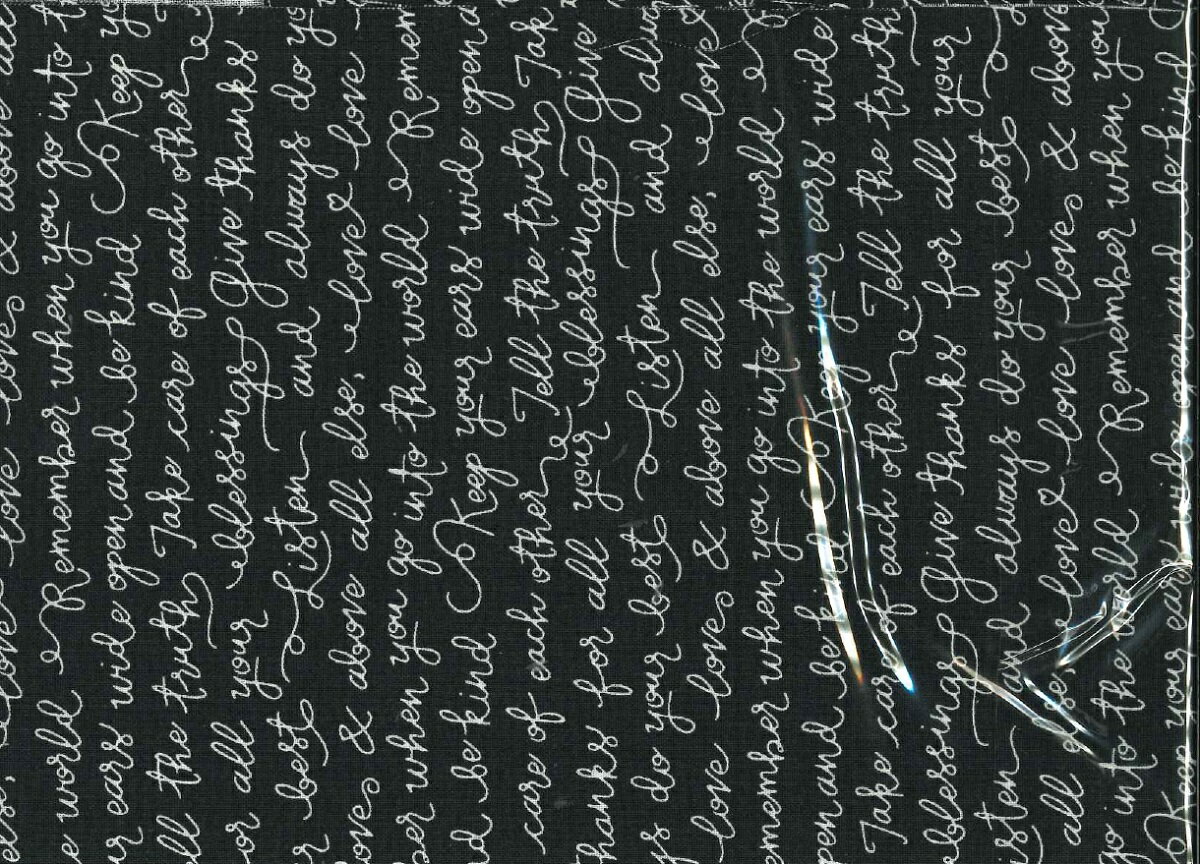 love loves & above all
world Remember when you go into
ears wide open and be kind Keep
the truth Take care of each other
all your blessings Give thanks
best Listen and always do
loves & above all else, love love
when you go into the world Remem
be kind Keep your ears wide open a
care of each other Tell the truth Tak
thanks for all your blessings Give
do your best Listen and alwa
love loves & above all else, love
emember when you go into the world
pen and be kind Keep your ears wide
Take care of each other Tell the truth
blessings Give thanks for all your
sten and always do your best
all else, love love loves & above
go into the world Remember when you
Keep your ears wide open and be kind